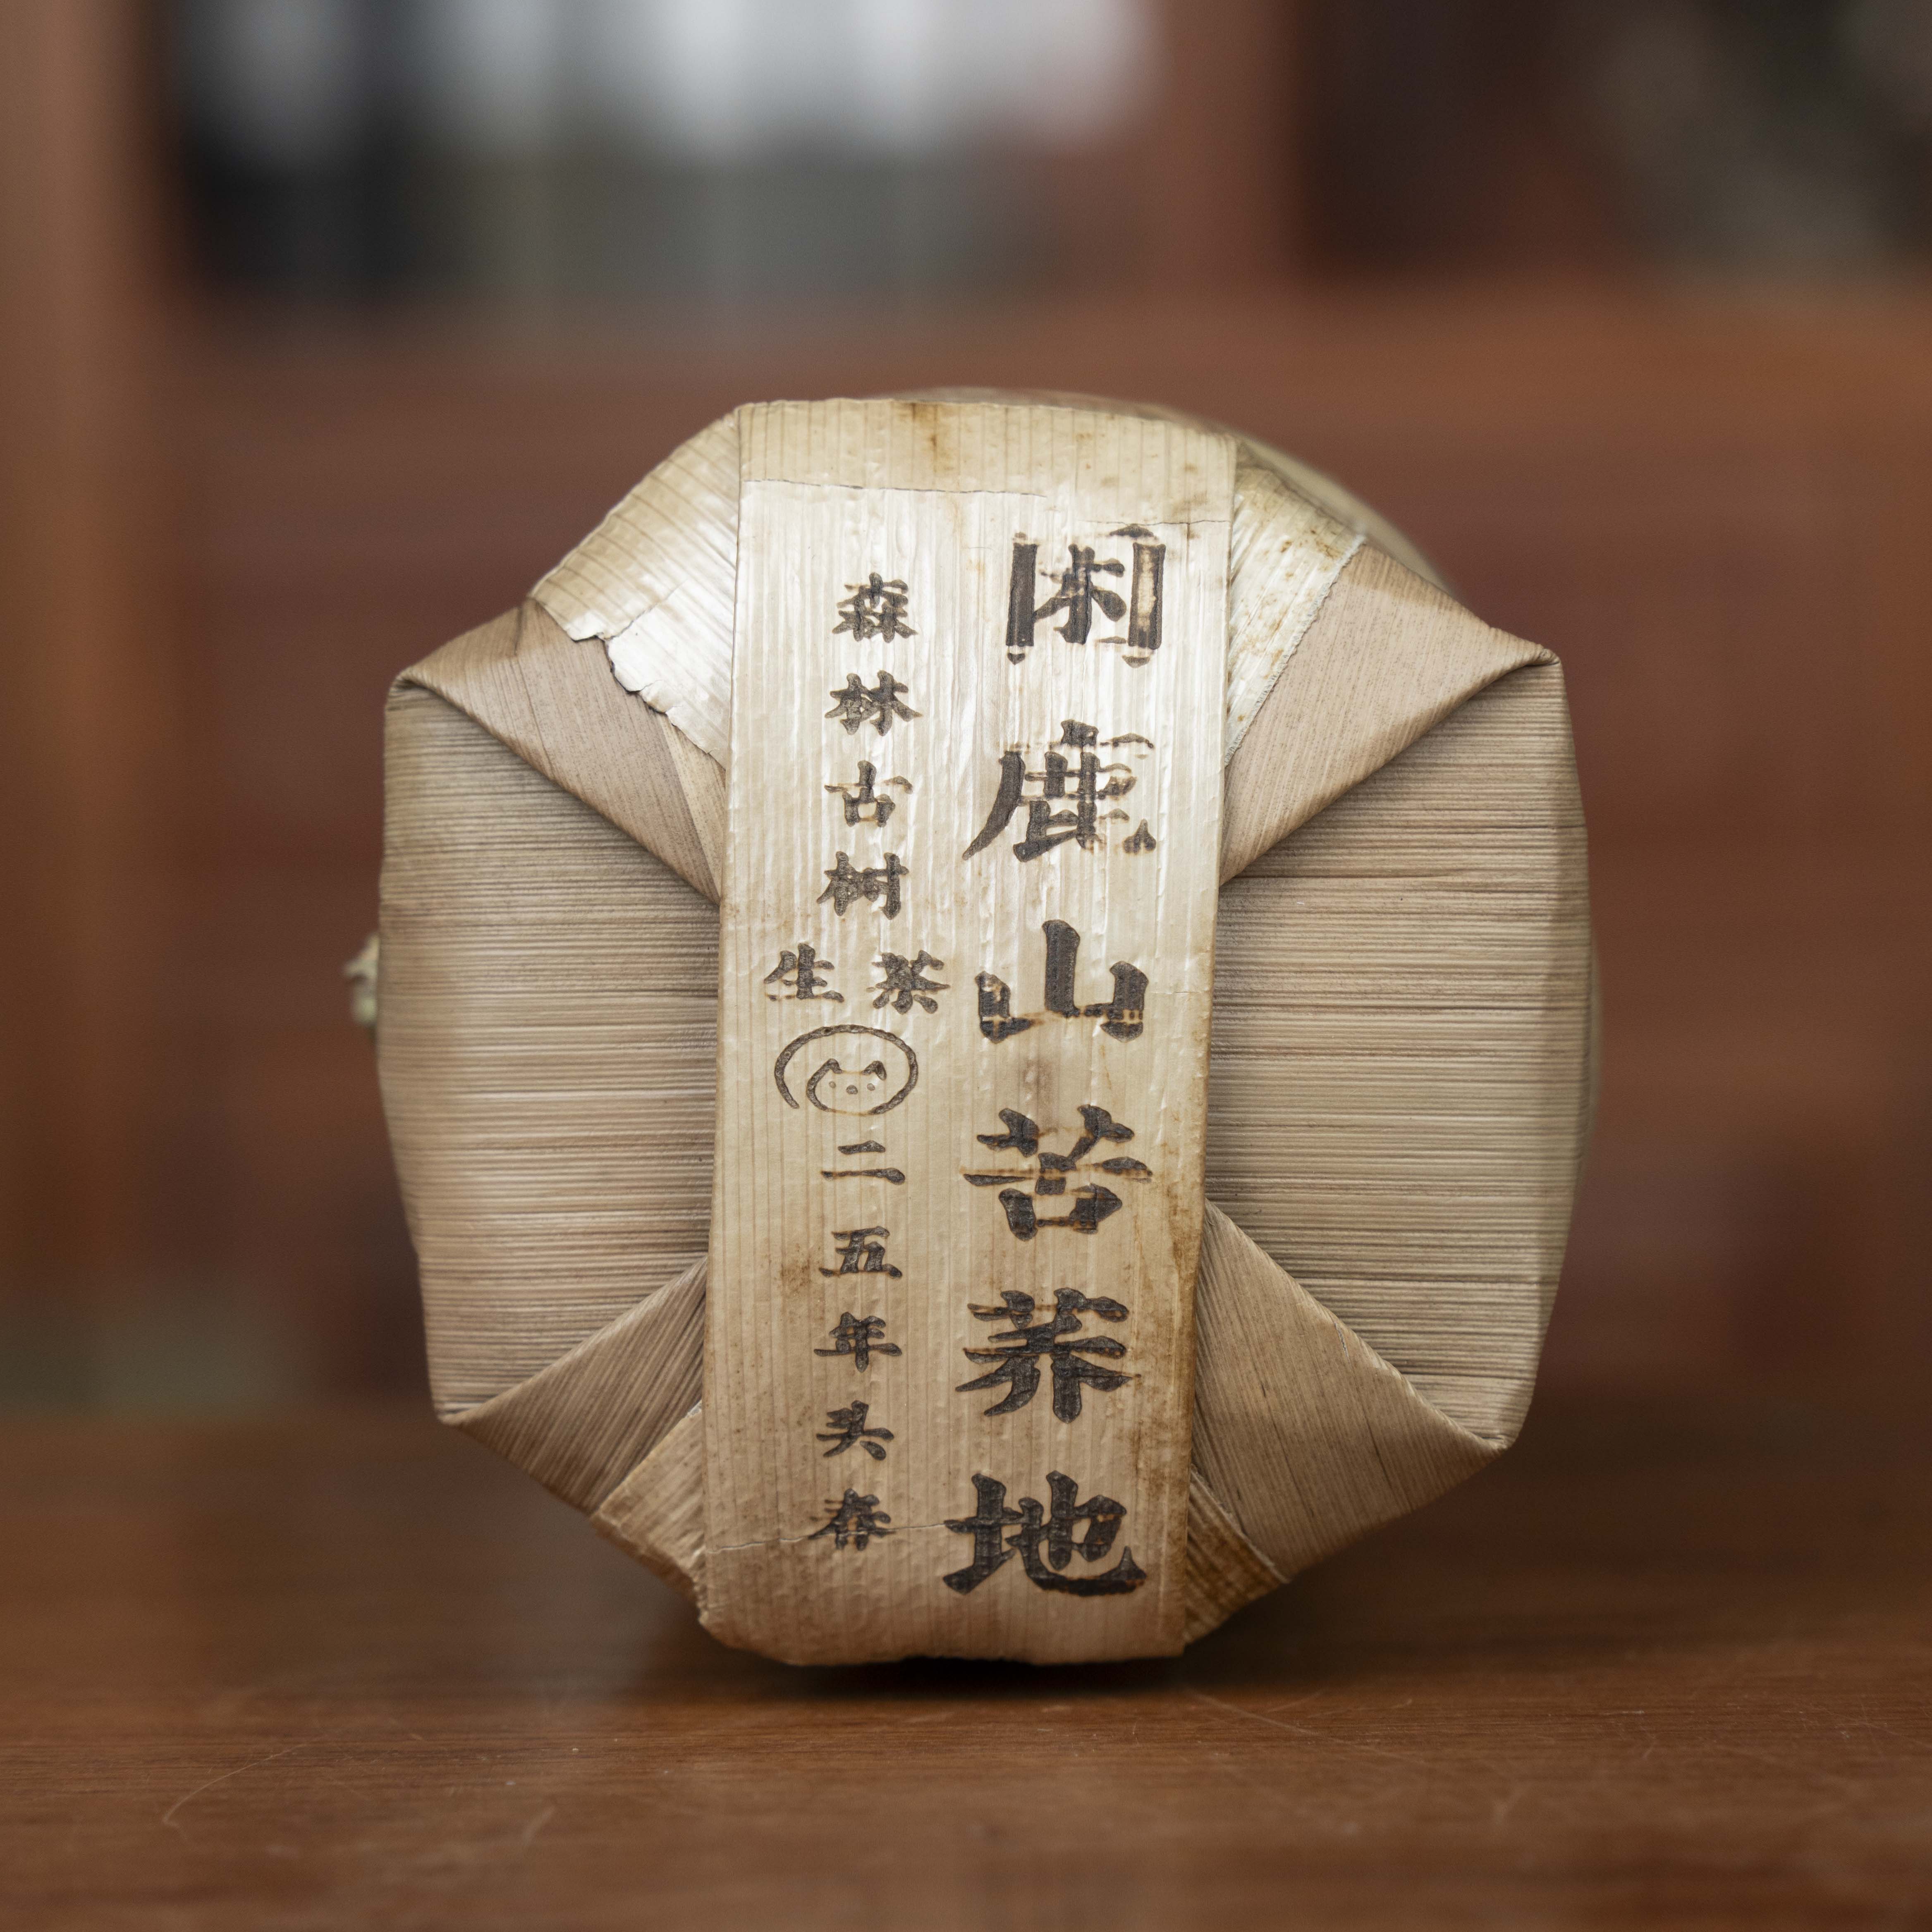 困鹿山苦荞地
森林古树
生茶
二五年头春